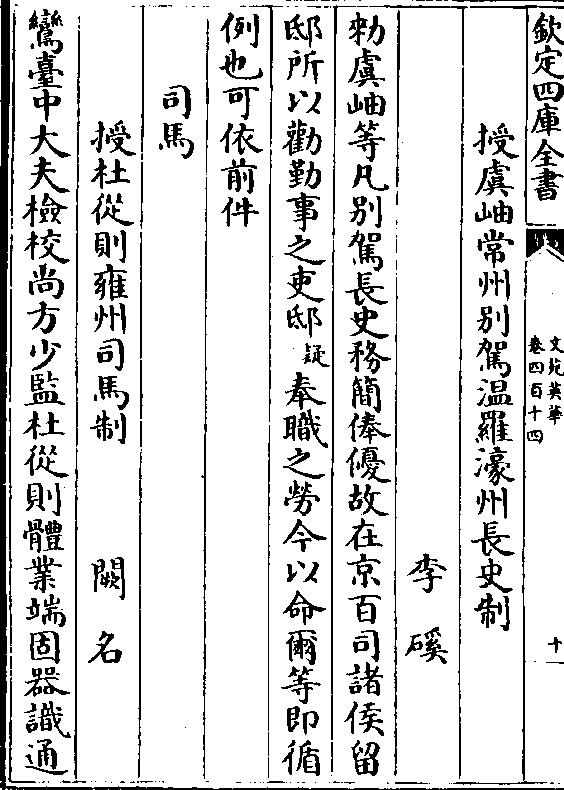 欽定四庫全書
文苑英華
卷四百十四
十一
授虞岫常州别駕温羅濠州長史制
李磎
勑虞岫等凡别駕長史務簡俸優故在京百司諸侯留
邸所以勸勤事之吏邸疑奉職之勞今以命爾等即循
例也可依前件
司馬
授杜從則雍州司馬制 闕名
鸞臺中大夫檢校尚方少監杜從則體業端固器識通